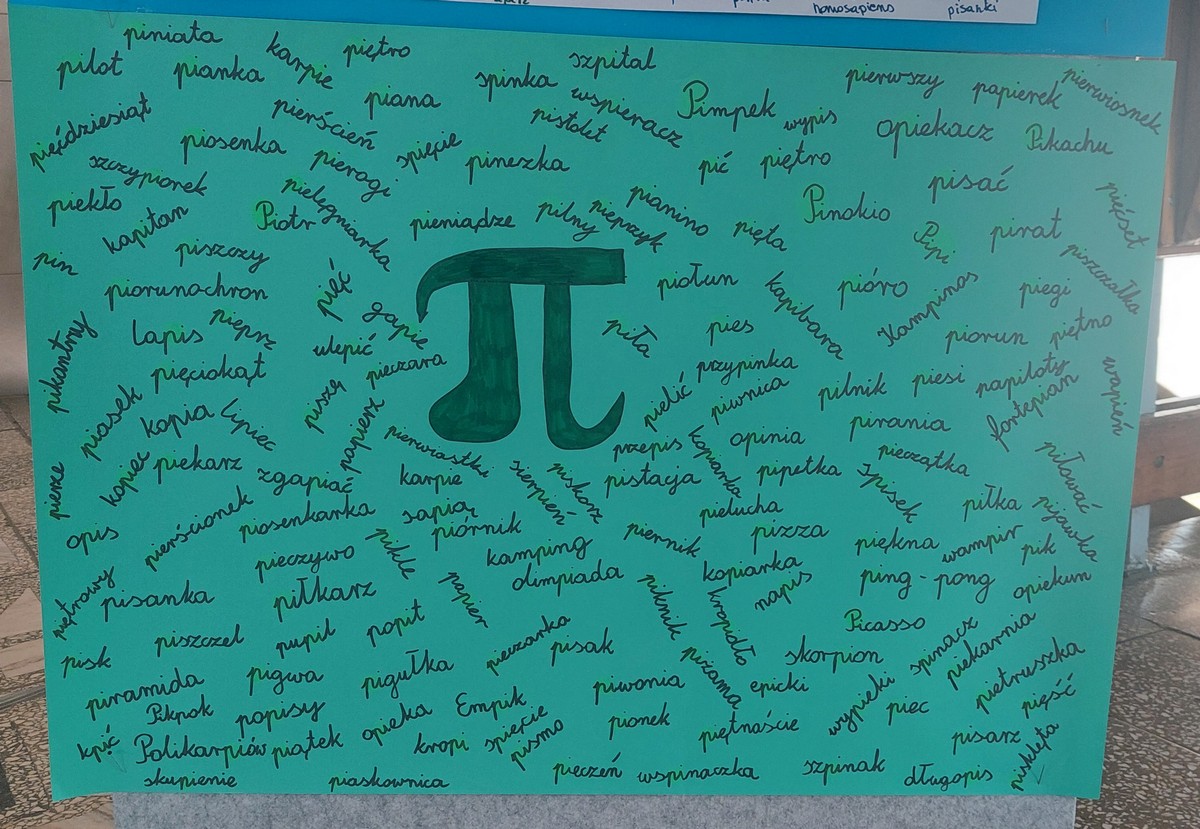 homosapiens
pisanki
piniata
karpie
piętro
szpital
pilot
pianka
spinka
pierwszy
papierek
pierwiosnek
piana
wspieracz
Pimpek
wypis
pięćdziesiąt
pierścień
pistolet
opiekacz
Pikachu
piosenka
pierogi
spięcie
pineska
pić
piętro
szczypiorek
pielęgniarka
pisać
pięćset
piekło
kapitan
Piotr
pieniądze
pilny
pieprzyk
pianino
pięta
Pinokio
Pipi
pirat
piszczałka
pin
piszczy
piorunochron
pięć
gapie
piołun
kapibara
pióro
Kampinas
piegi
pikantny
Lapis
pieprz
ulepić
pieczara
piła
pies
przypinka
piorun
piętno
pięciokąt
piszę
papierz
pielić
piwnica
pilnik
piesi
napiloty
fortepian
wapień
piasek
kopia
lipiec
pierwiastki
przepis
kopiarka
opinia
pirania
pieczątka
pierze
kopiec
piekarz
zgapiać
karpie
sierpień
piskorz
pistacja
pipetka
spisek
piłować
opis
pierścionek
piosenkarka
sapiąc
piórnik
pielucha
piłka
pijawka
pieczywo
pikle
kamping
piernik
pizza
piękna
wampir
pik
piętrowy
pisanka
piłkarz
papier
olimpiada
piknik
kopiarka
kropidło
napis
ping-pong
opiekun
pisk
piszczel
pupil
popit
pieczarka
pisak
Picasso
skorpion
spinacz
piekarnia
pietruszka
piramida
pigwa
pigułka
piżama
piwonia
epicki
wypieki
piec
pięść
Pikpok
popisy
opieka
Empik
spięcie
pismo
pionek
piętnaście
pisarz
kpić
Polikarpiów
piątek
kropi
pisklęta
skupienie
piaskownica
pieczeń
wspinaczka
szpinak
długopis